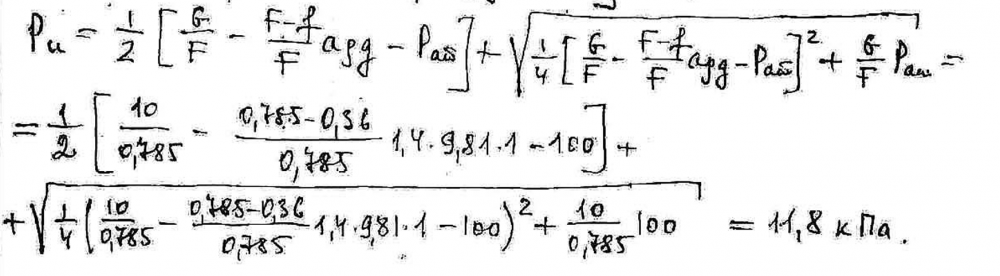 Pи = 1/2 [G/F - (F-f)/F aρg - Pат] + √(1/4 [G/F - (F-f)/F aρg - Pат]² + G/F Pат) =
= 1/2 [10/0,785 - (0,785-0,36)/0,785 1,4·9,81·1 - 100] +
+ √(1/4 (10/0,785 - (0,785-0,36)/0,785 1,4·9,81·1 - 100)² + 10/0,785 100) = 11,8 кПа.